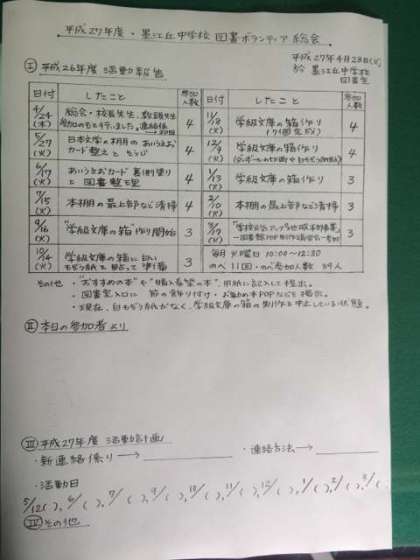 平成27年度・墨江丘中学校 図書ボランティア総会
平成27年4月28日(火)
於 墨江丘中学校
図書室
Ⅰ 平成26年度 活動報告
日付 したこと 参加人数
4/24(木) 総会・校長先生、教頭先生 4
5/27(火) 日本文学の本棚のあいうえお
カード整えと そうじ 4
6/17(火) あいうえおカード裏側塗り
と 図書整理 4
7/15(火) 本棚の最上部など清掃 4
9/16(火) "学級文庫の箱"作り開始 3
10/14(火) 学級文庫の箱に白い
もぞう紙を 貼って 準備 3
日付 したこと 参加人数
11/18(火) 学級文庫の箱作り
(7個完成) 4
12/9(火) 学級文庫の箱作り 4
1/13(火) 学級文庫の箱作り 3
2/10(火) 本棚の最上部など清掃 3
3
毎月 火曜日 10:00~12:30
のべ 11回・のべ参加人数 39人
その他・"おすすめの本"や"購入希望の本"、用紙に記入して提出。
・図書室入口に 節の飾り付け・お勧め本POPなどを掲示。
・現在、白もぞう紙がなく、学級文庫の箱の製作を中止している状態。
Ⅱ 本日の参加者より
Ⅲ 平成27年度 活動計画
・新連絡係り→ ・連絡方法→
・活動日
5/12( )、6/( )、7/( )、9/( )、10/( )、11/( )、12/( )、1/( )、2/( )、3/( )
Ⅳ その他